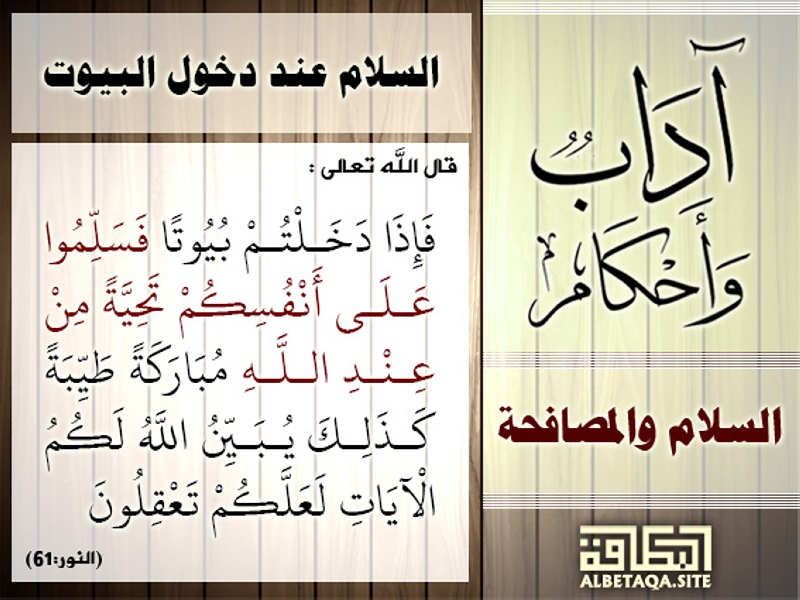 السلام عند دخول البيوت
قال الله تعالى :
فَإِذَا دَخَـلْتُـمْ بُيُوتًا فَسَلِّمُوا
عَـلَـى أَنْفُسِكُمْ تَحِيَّةً مِنْ
عِـنْـدِ الـلَّـهِ مُبَارَكَةً طَيِّبَةً
كَـذَلِـكَ يُـبَـيِّنُ اللَّهُ لَـكُمُ
الْآيَاتِ لَعَلَّكُمْ تَعْقِلُونَ
(النور:61)
آدَابٌ
وَأَحْكَام
السلام والمصافحة
البطاقة
ALBETAQA.SITE